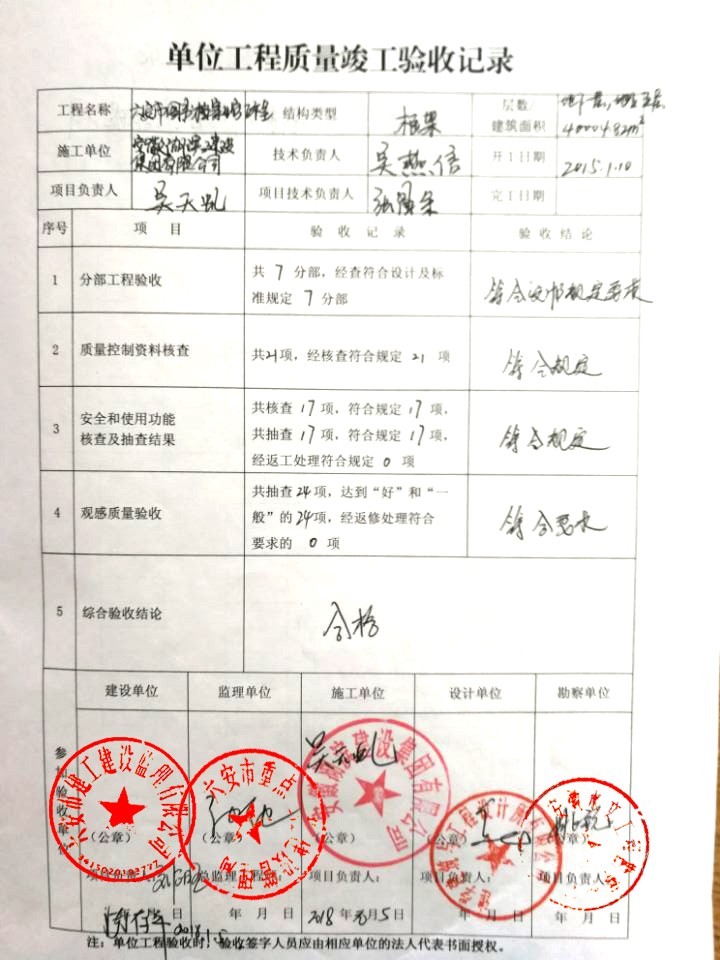 单位工程质量竣工验收记录
工程名称 结构类型 框架 层数/
建筑面积
施工单位 技术负责人 吴 开工日期 2015.1.10
集团有限公司
项目负责人 吴天 项目技术负责人 完工日期
序号 项 目 验 收 记 录 验 收 结 论
1 分部工程验收 共 7 分部，经查符合设计及标
准规定 7 分部
符合设计规定要求
2 质量控制资料核查 共21项，经核查符合规定 21 项 符合规定
3 安全和使用功能
核查及抽查结果
共核查 17 项，符合规定 17 项，
共抽查 17 项，符合规定 17 项，
经返工处理符合规定 0 项
符合规定
4 观感质量验收 共抽查 24 项，达到“好”和“一
般”的 24 项，经返修处理符合
要求的 0 项
符合要求
5 综合验收结论 合格
参加验收单位
建设单位 监理单位 施工单位 设计单位 勘察单位
六安市建工建设监理有限公司
六安市重点
建设集团有限公司
工程设计
（公章） （公章） （公章） （公章） （公章）
项目负责人： 总监理工程 项目负责人： 项目负责人： 项目负责人：
月 日 年 月 日 2018 年 月 5 日 年 月 日 年 月 日
注：单位工程验收时，验收签字人员应由相应单位的法人代表书面授权。